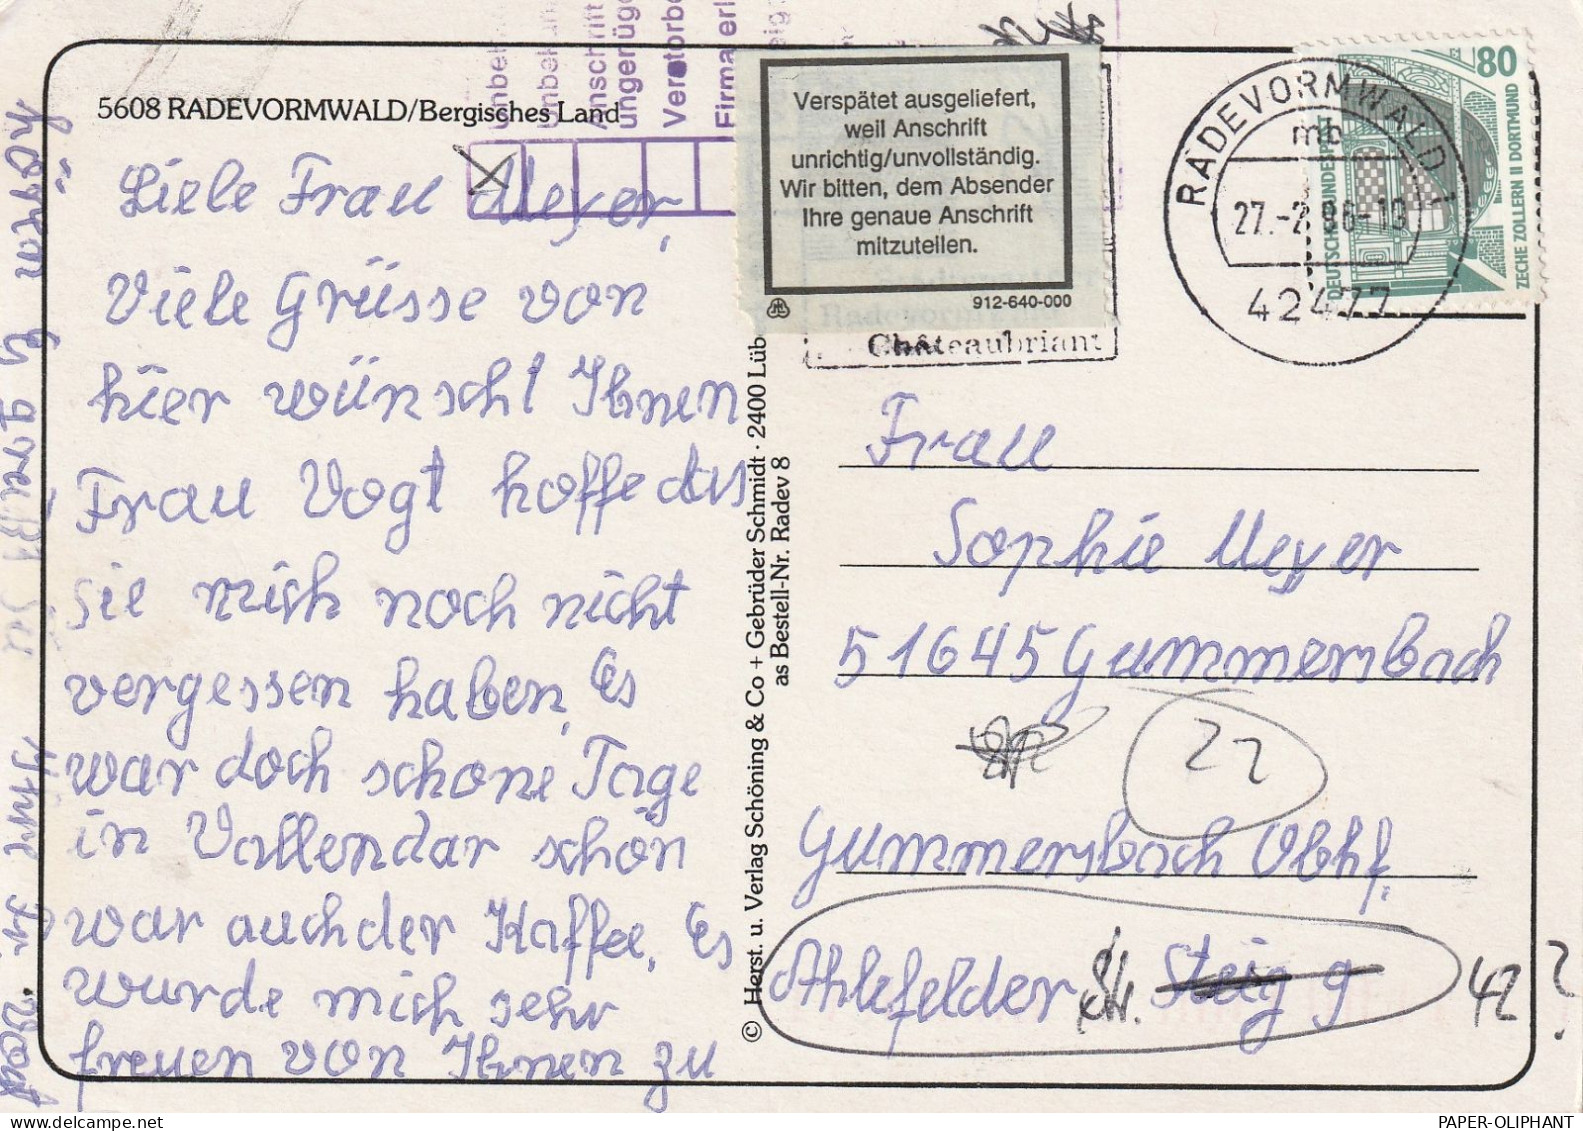 5608 RADEVORMWALD/Bergisches Land
Liebe Frau Meyer,
Viele Grüsse von
hier wünscht Ihnen
Frau Vogt hoffe das
sie mich noch nicht
vergessen haben, Es
war doch schöne Tage
in Vallendar schön
war auch der Kaffee, Es
wurde mich sehr
freuen von Ihnen zu
hören
grüßt Sie
Ihre Fr. Vogt
Anschrift
ungenüge
Verstorbe
Firma erl
Verspätet ausgeliefert,
weil Anschrift
unrichtig/unvollständig.
Wir bitten, dem Absender
Ihre genaue Anschrift
mitzuteilen.
912-640-000
Radevormwald
Châteaubriant
RADEVORMWALD 1
mb
27.-2.96-19
42477
80
DEUTSCHE BUNDESPOST
ZECHE ZOLLERN II DORTMUND
© Herst. u. Verlag Schöning & Co + Gebrüder Schmidt · 2400 Lüb
as Bestell-Nr. Radev 8
Frau
Sophie Meyer
51645 Gummersbach
22
Gummersbach Obhf.
Ahlefelder Str. Steig 9 42?
PAPER-OLIPHANT